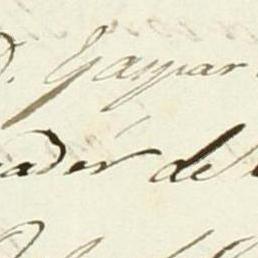 D. Gaspar
ador de